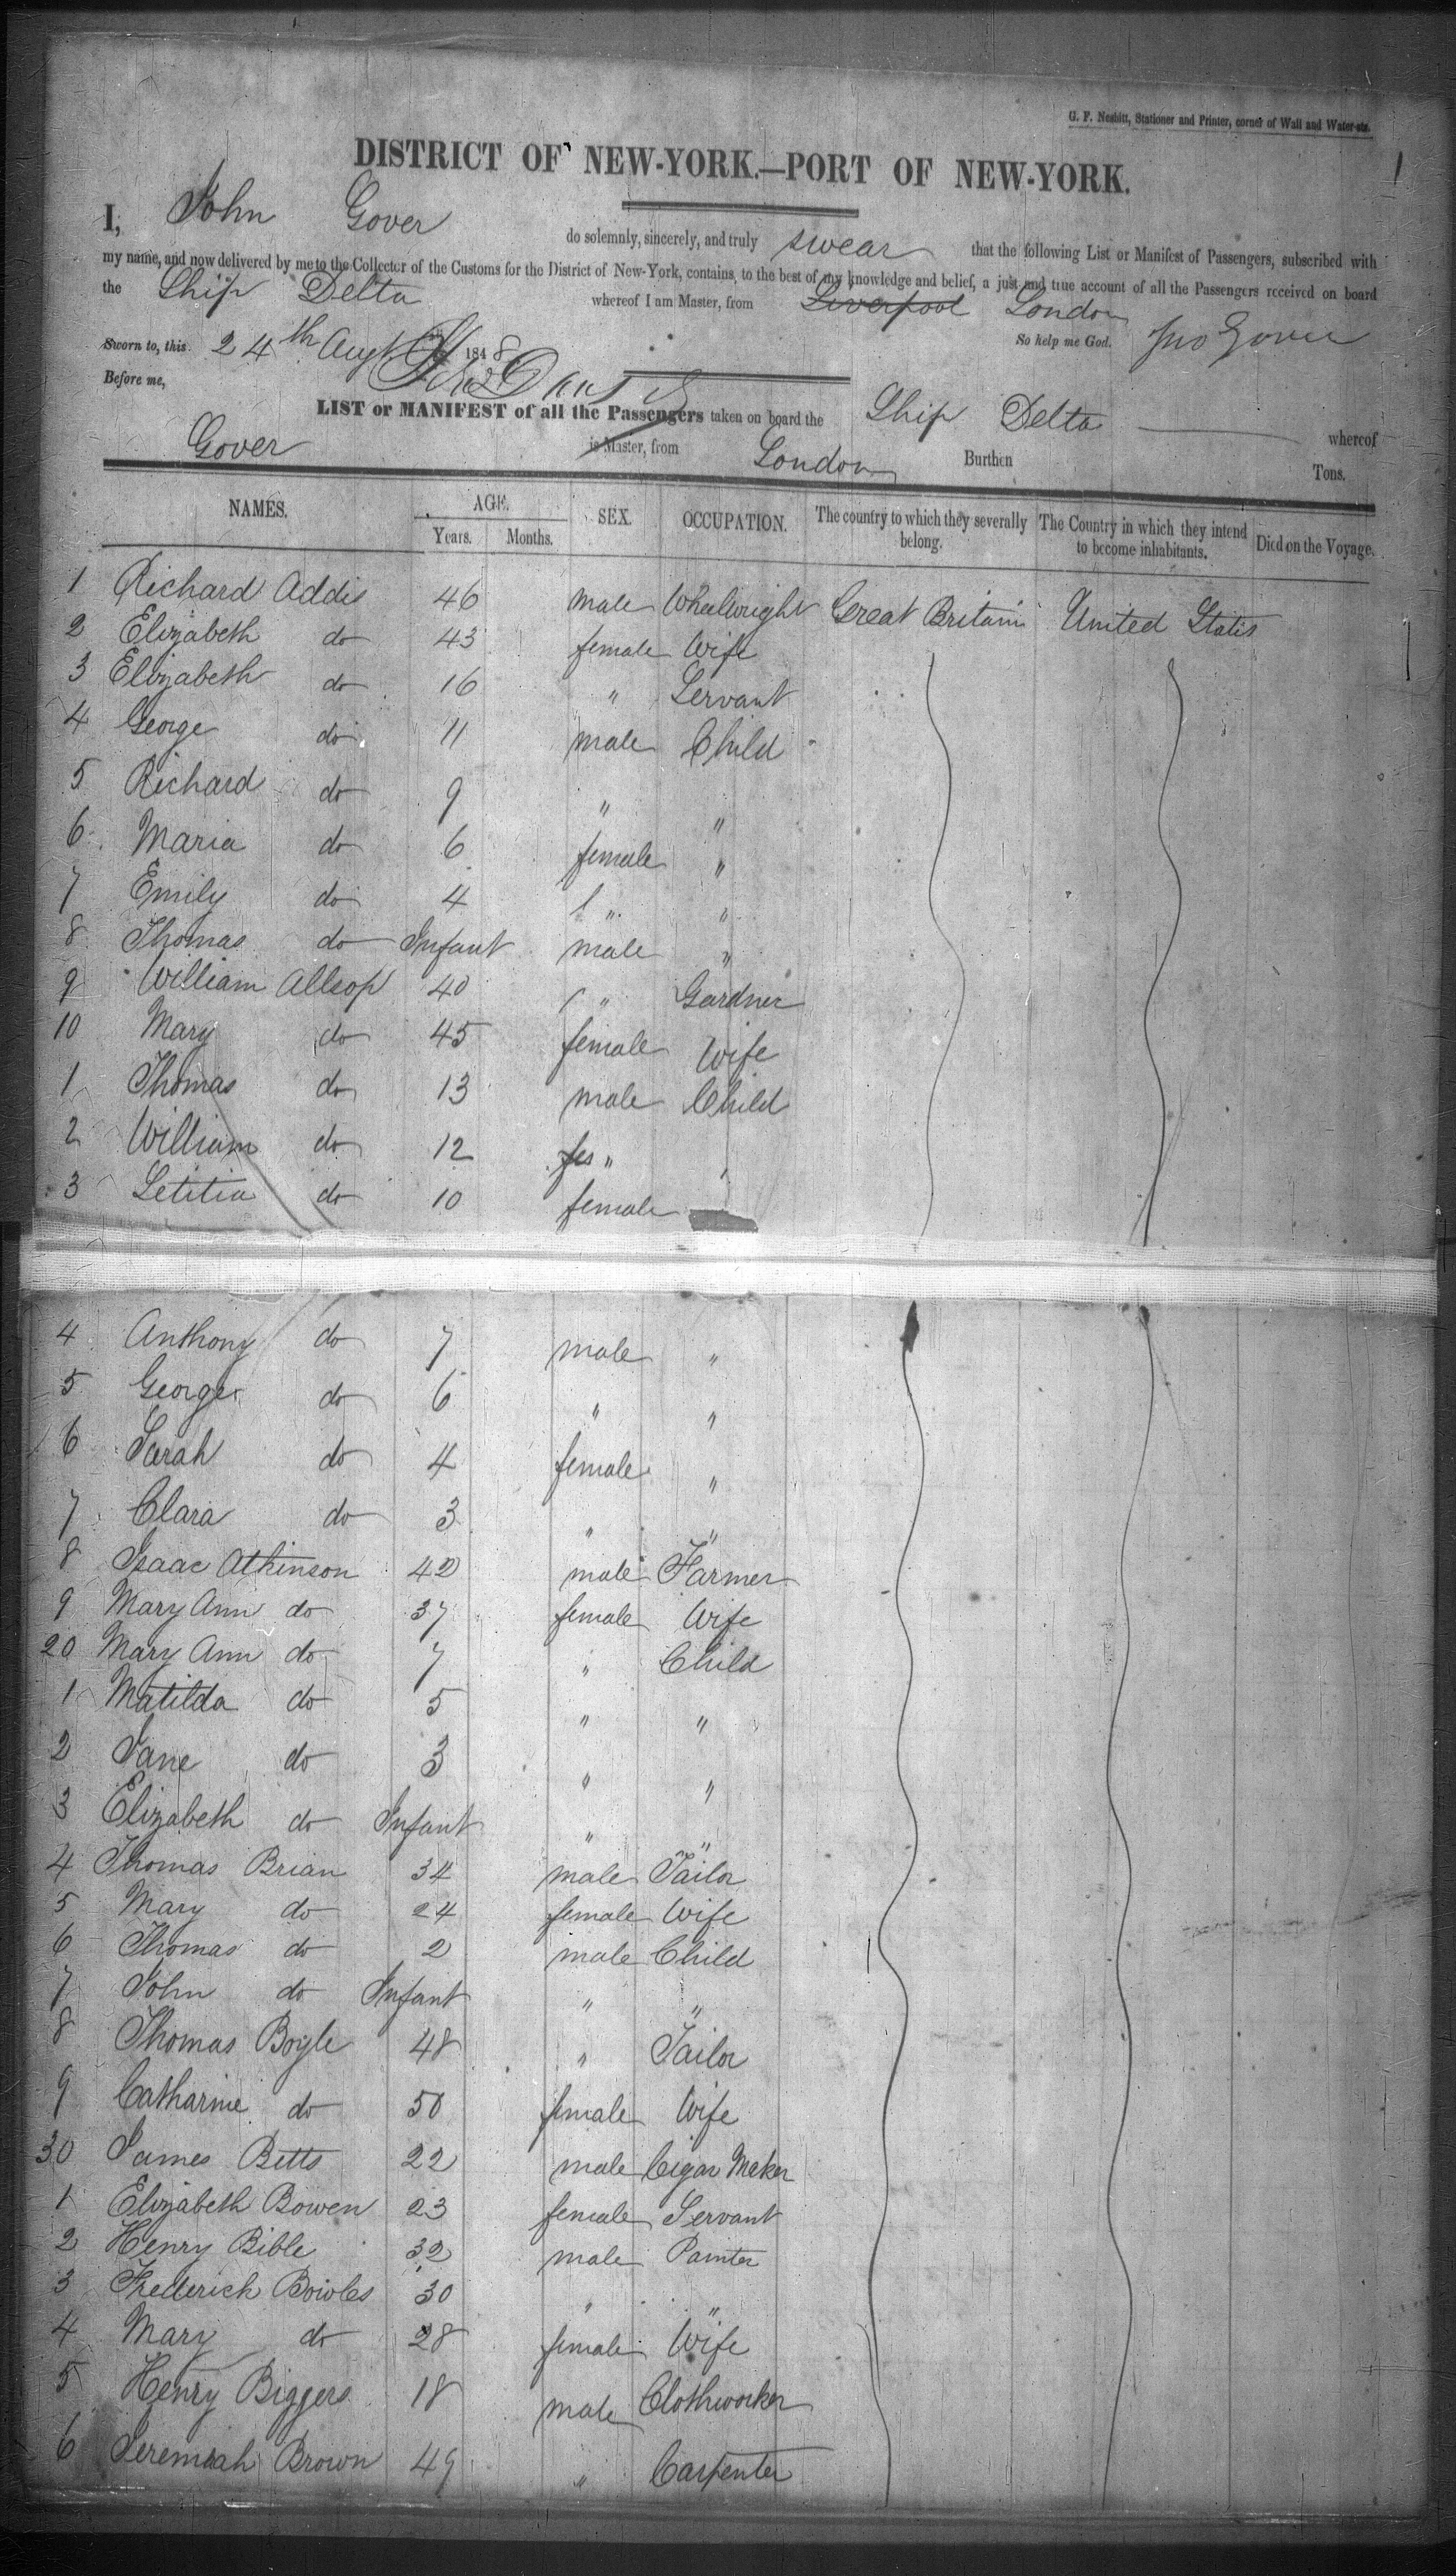 G. F. Nesbitt, Stationer and Printer, corner of Wall and Water-sts.
1
DISTRICT OF NEW-YORK.—PORT OF NEW-YORK.
I, John Gover do solemnly, sincerely, and truly swear that the following List or Manifest of Passengers, subscribed with
my name, and now delivered by me to the Collector of the Customs for the District of New-York, contains, to the best of my knowledge and belief, a just and true account of all the Passengers received on board
the Ship Delta whereof I am Master, from Liverpool London
Sworn to, this 24th Augt 1848 So help me God. Jno Gover
Before me,
LIST or MANIFEST of all the Passengers taken on board the Ship Delta whereof
Gover is Master, from London Burthen Tons.
NAMES. AGE. SEX. OCCUPATION. The country to which they severally belong. The Country in which they intend to become inhabitants. Died on the Voyage.
Years. Months.
1 Richard Addis 46 male Wheelwright Great Britain United States
2 Elizabeth do 43 female Wife
3 Elizabeth do 16 " Servant
4 George do 11 male Child
5 Richard do 9 " "
6 Maria do 6 female "
7 Emily do 4 " "
8 Thomas do Infant male "
9 William Allsop 40 " Gardner
10 Mary do 45 female Wife
1 Thomas do 13 male Child
2 William do 12 " "
3 Letitia do 10 female
4 Anthony do 7 male "
5 George do 6 " "
6 Sarah do 4 female "
7 Clara do 3 " "
8 Isaac Atkinson 42 male Farmer
9 Mary Ann do 37 female Wife
20 Mary Ann do 7 " Child
1 Matilda do 5 " "
2 Jane do 3 " "
3 Elizabeth do Infant " "
4 Thomas Brian 34 male Tailor
5 Mary do 24 female Wife
6 Thomas do 2 male Child
7 John do Infant " "
8 Thomas Boyle 48 " Tailor
9 Catharine do 50 female Wife
30 James Betts 22 male Cigar Maker
1 Elizabeth Bowen 23 female Servant
2 Henry Bible 32 male Painter
3 Frederick Bowles 30 " "
4 Mary do 28 female Wife
5 Henry Biggers 18 male Clothworker
6 Jeremiah Brown 49 " Carpenter